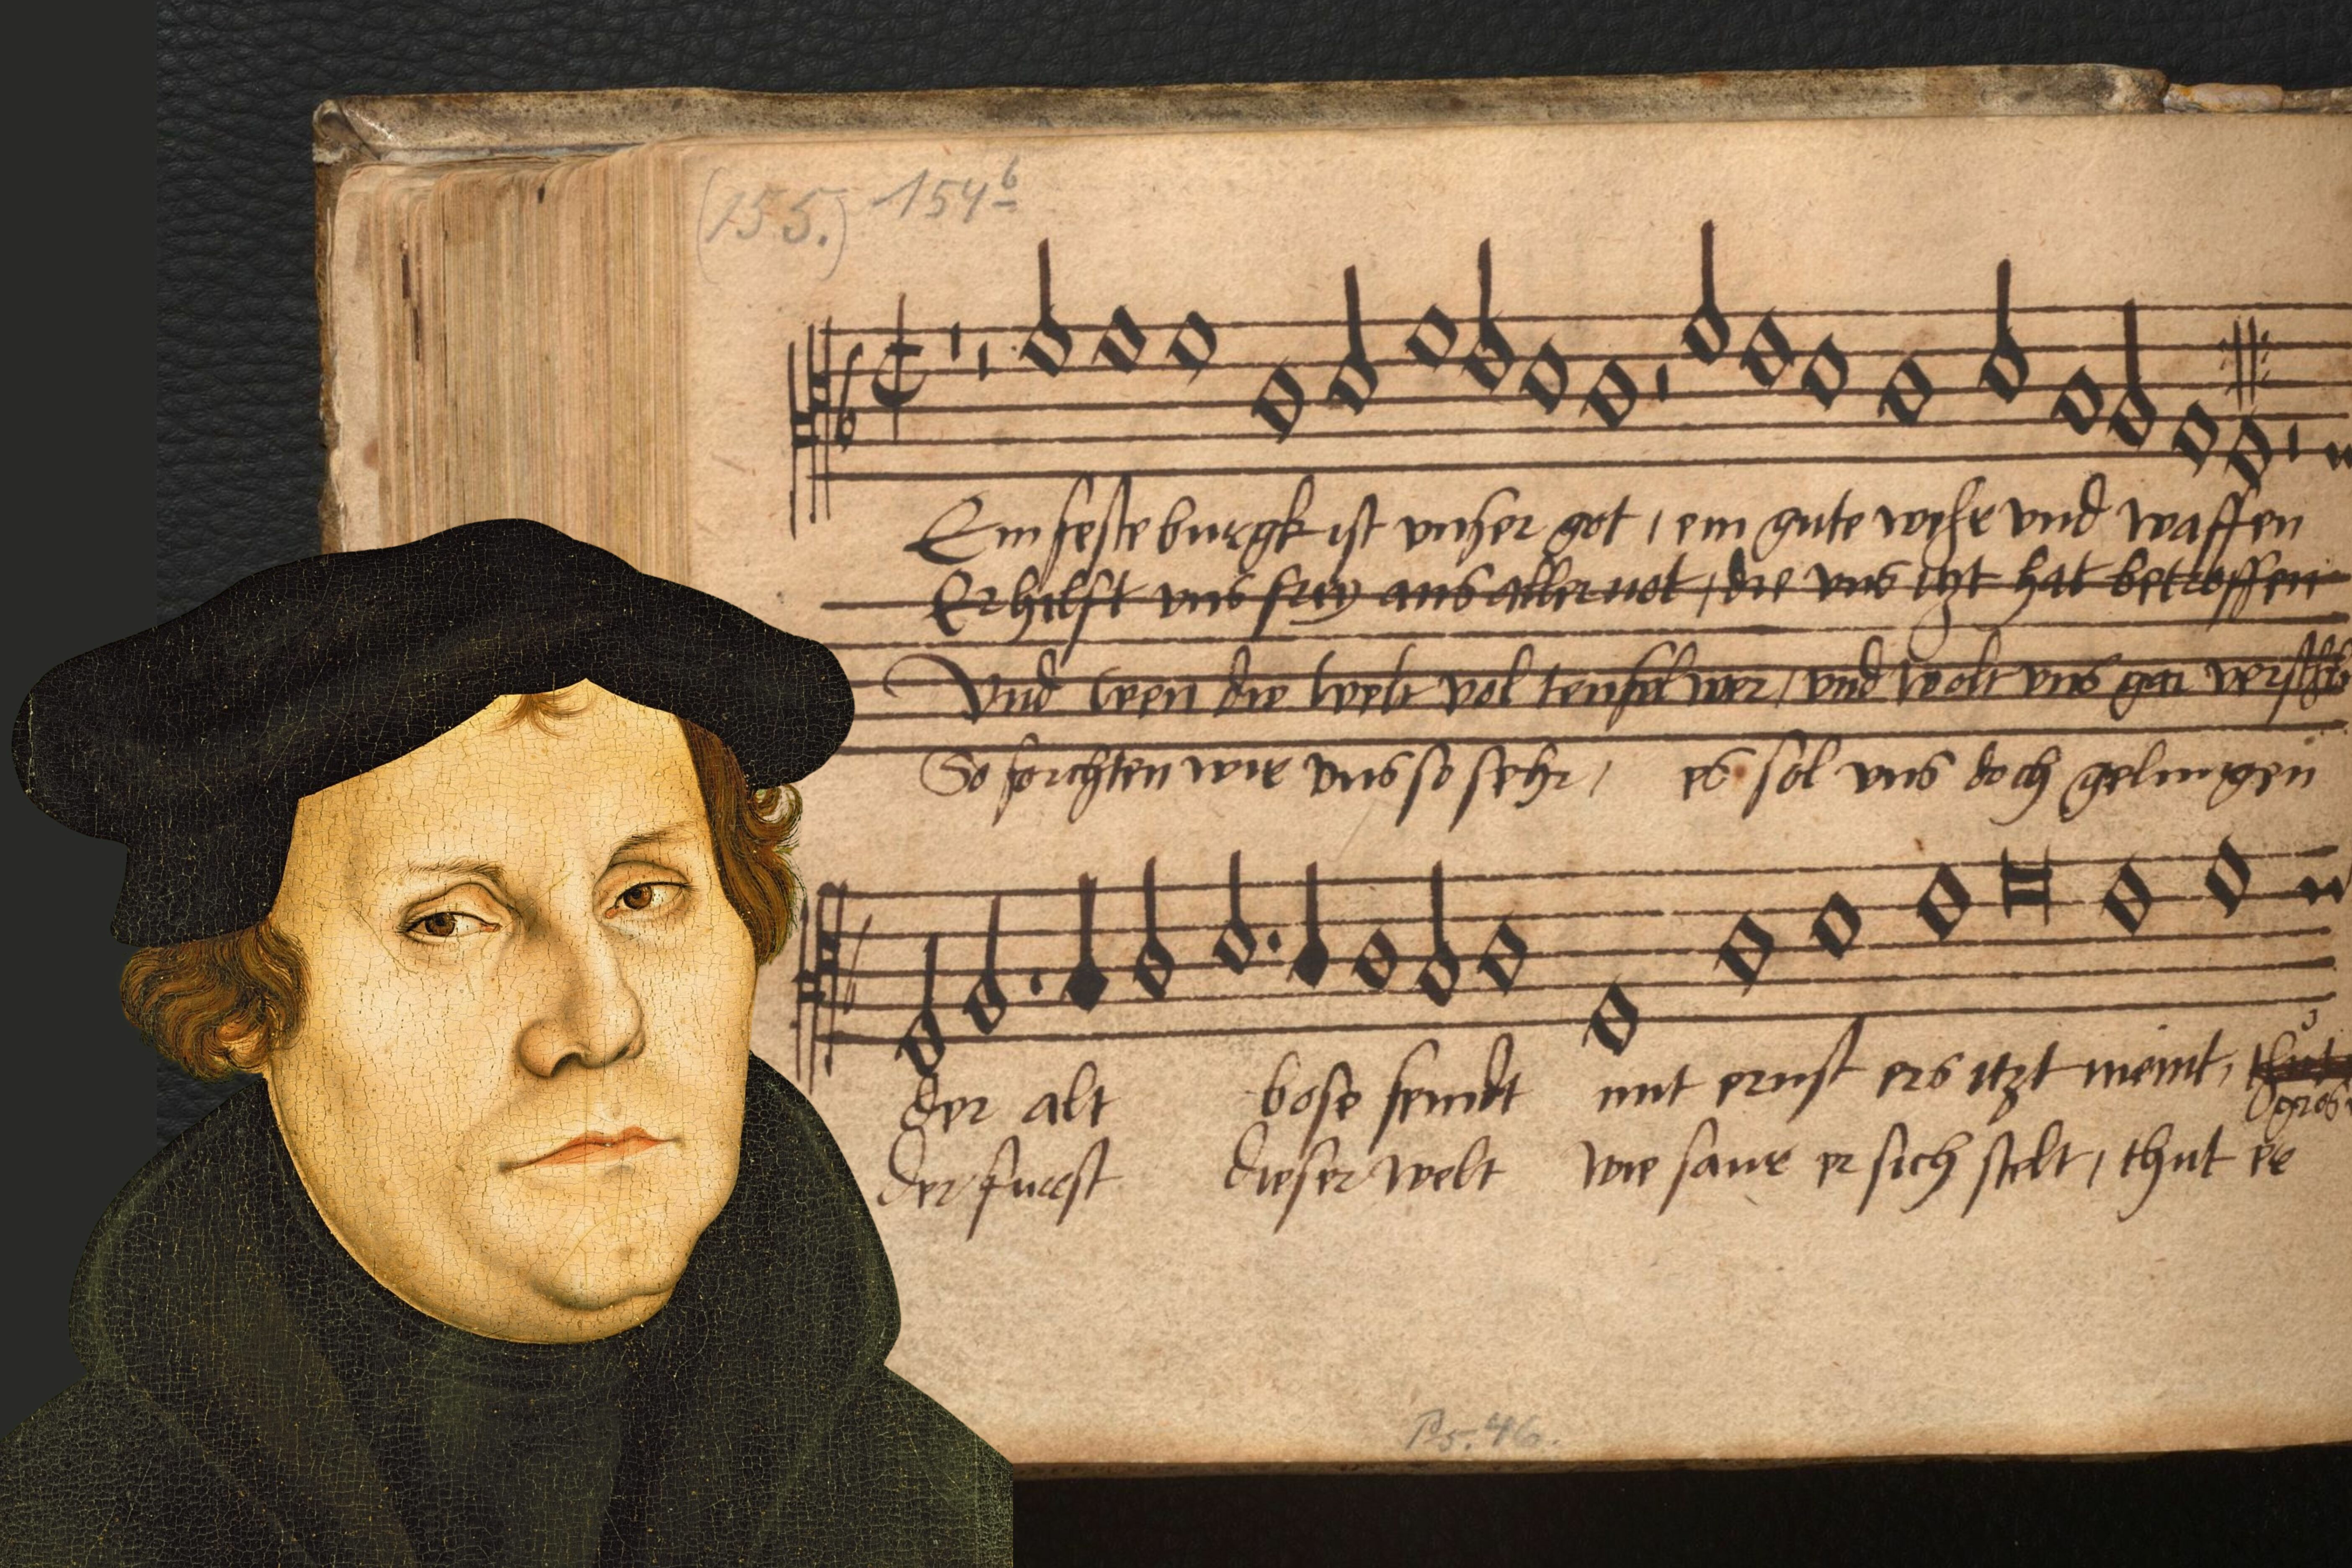 (155.) 154b
Ein feste burgk ist vnser got / ein gute wehr vnd waffen
Er hilft vns frey aus aller not / die vns itzt hat betroffen
Vnd wen die welt vol teufel wer / vnd wolt vns gar
So forchten wir vns so sehr / es sol vns doch gelingen
der alt bose feindt mit ernst ers itzt meint,
gros
der furst dieser welt wie saur er sich stelt / thut er
Ps. 46.